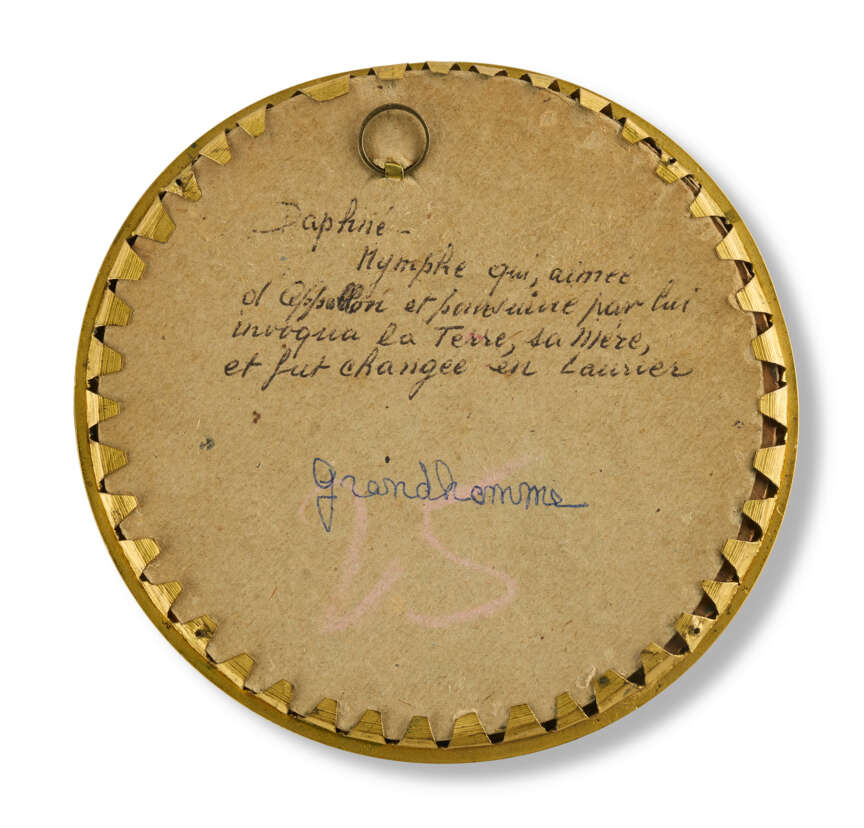 Daphné -
Nymphe qui, aimée
d'Appollon et poursuivie par lui
invoqua la Terre, sa Mère,
et fut changée en Laurier
Grandhomme
25